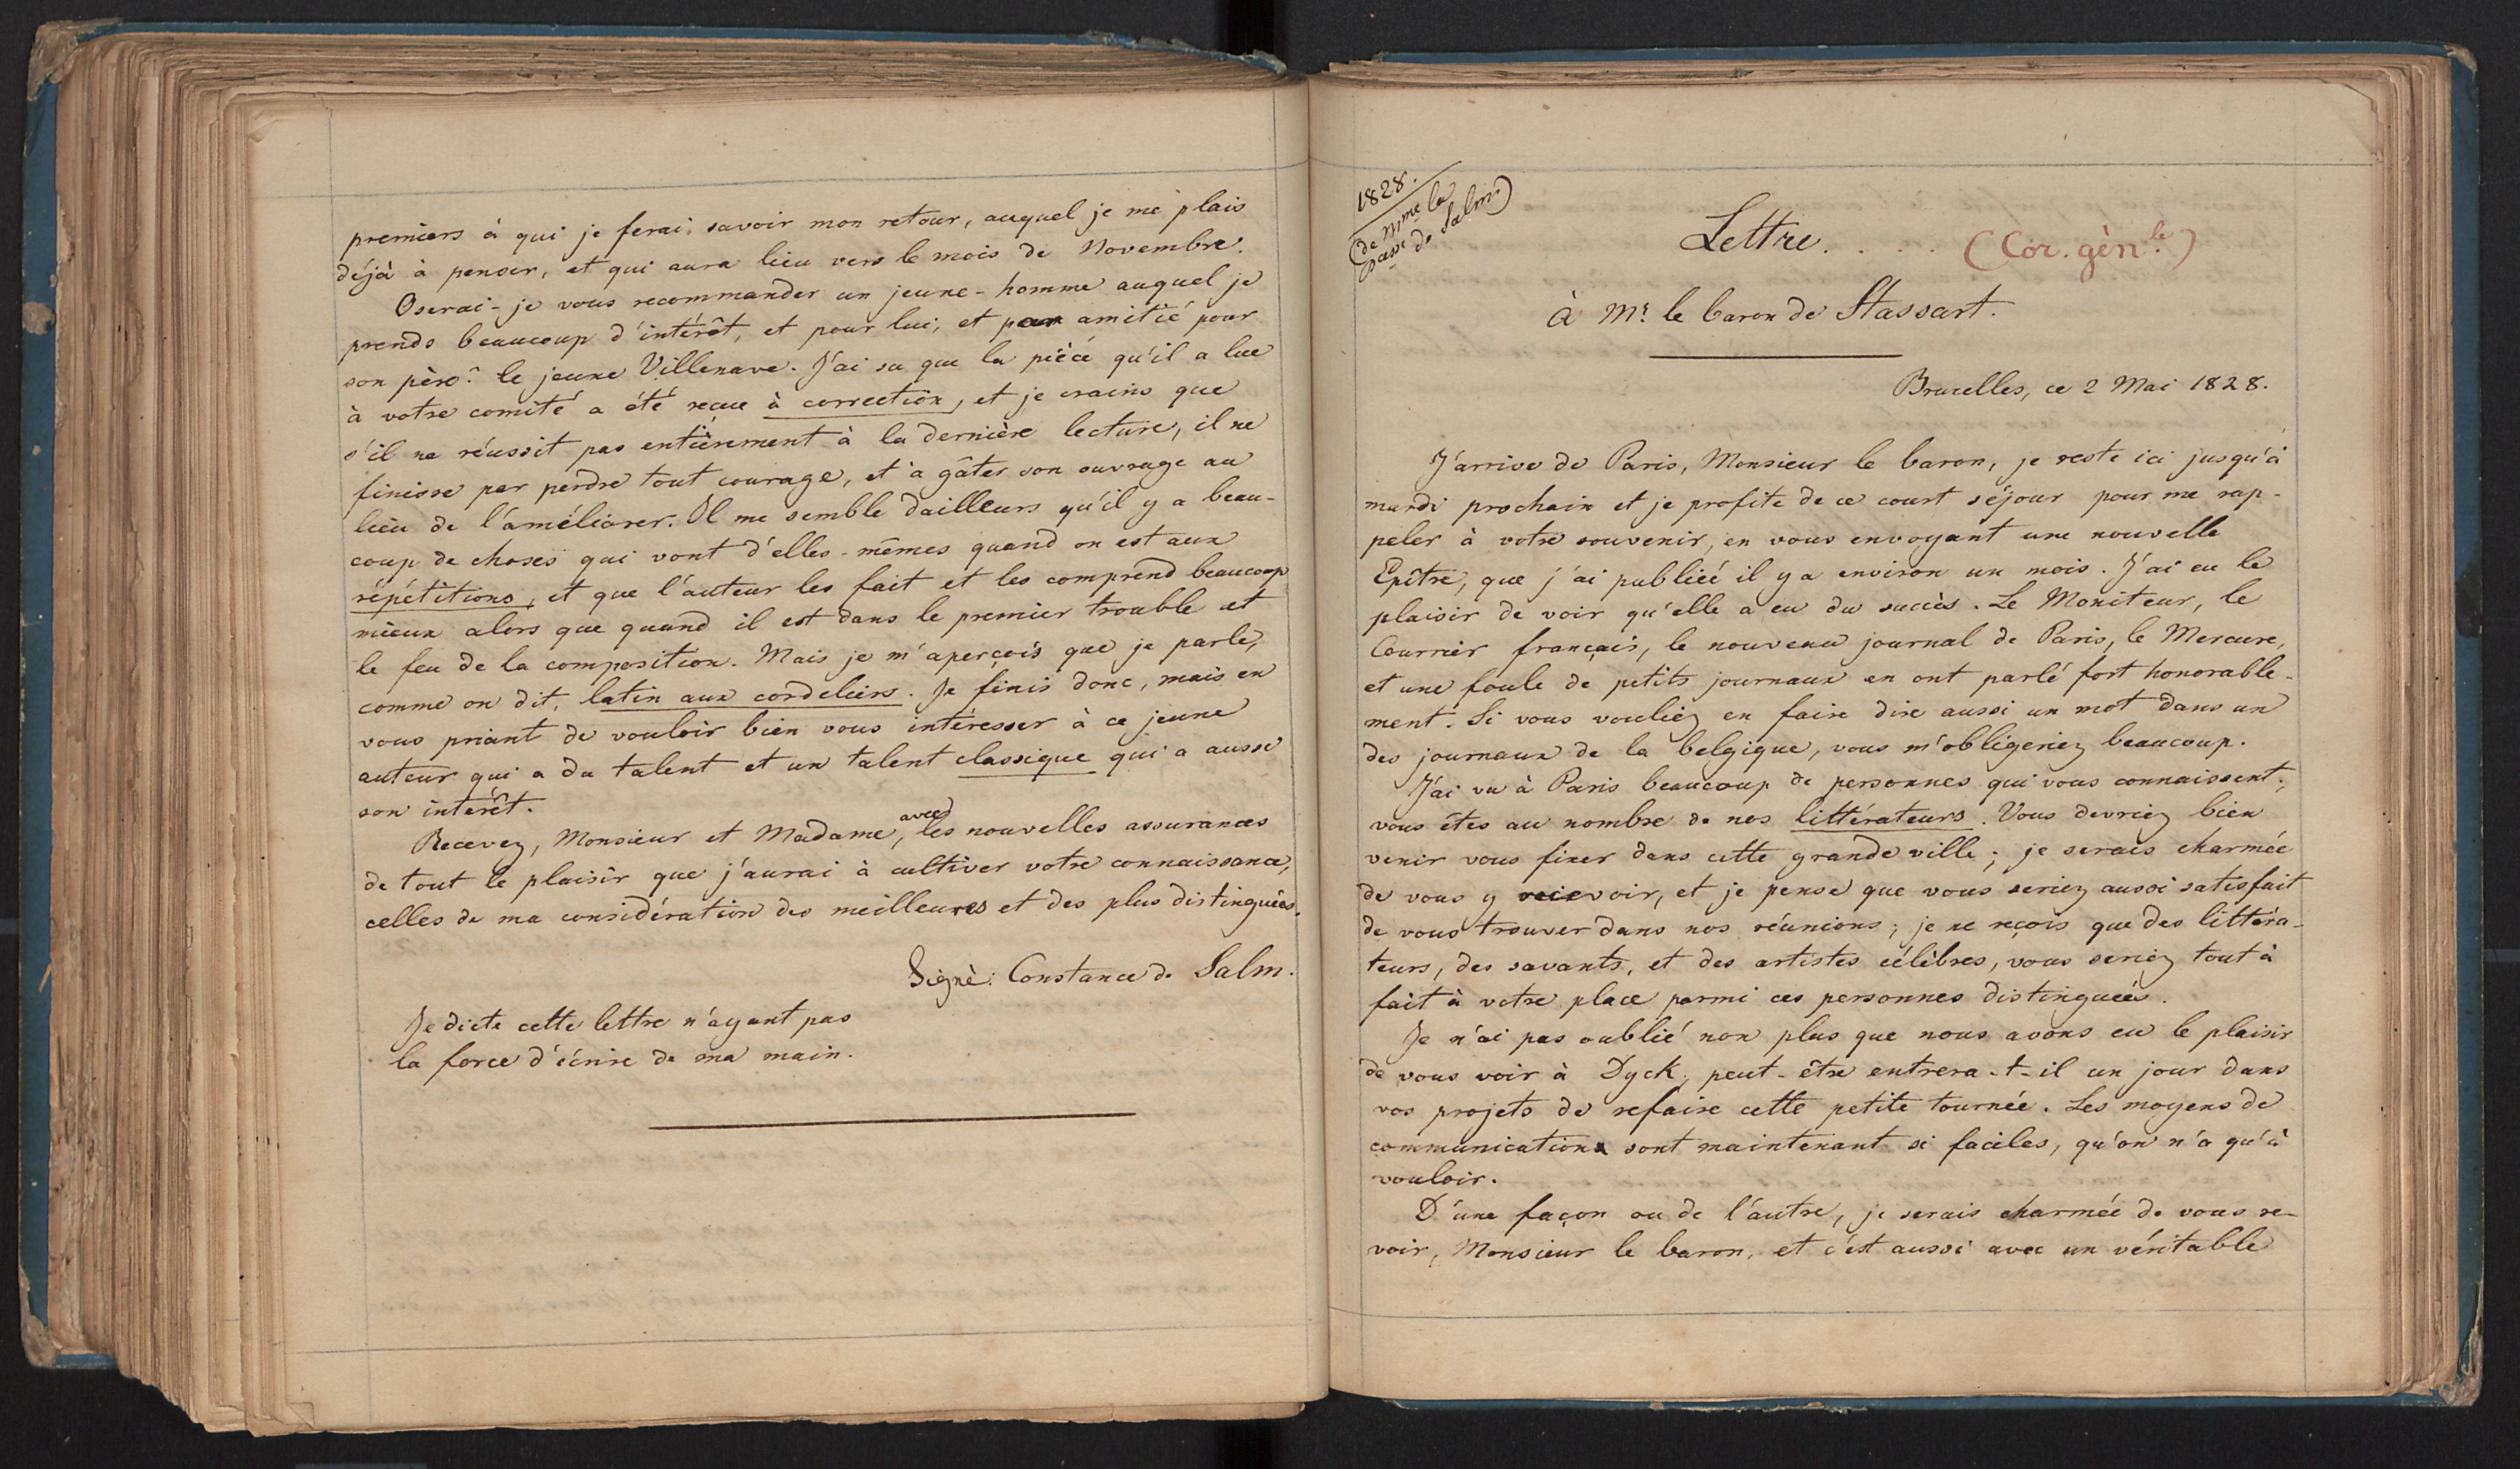 premiers à qui je ferai savoir mon retour, auquel je me plais
déjà à penser, et qui aura lieu vers le mois de Novembre.
Oserai-je vous recommander un jeune-homme auquel je
prends beaucoup d'intérêt, et pour lui, et par amitié pour
son père: le jeune Villenave. J'ai su que la pièce qu'il a lue
à votre comité a été reçue à correction, et je crains que
s'il ne réussit pas entièrement à la dernière lecture, il ne
finisse par perdre tout courage, et à gâter son ouvrage au
lieu de l'améliorer. Il me semble dailleurs qu'il y a beau-
coup de choses qui vont d'elles-mêmes quand on est aux
répétitions, et que l'auteur les fait et les comprend beaucoup
mieux alors que quand il est dans le premier trouble et
le feu de la composition. Mais je m'aperçois que je parle,
comme on dit, latin aux cordeliers. Je finis donc, mais en
vous priant de vouloir bien vous intéresser à ce jeune
auteur qui a du talent et un talent classique qui a aussi
son intérêt.
Recevez, Monsieur et Madame, avec les nouvelles assurances
de tout le plaisir que j'aurai à cultiver votre connaissance,
celles de ma considération des meilleures et des plus distinguées.
Signé: Constance de Salm.
Je dicte cette lettre n'ayant pas
la force d'écrire de ma main.
1828.
(de Mme la
Psse de Salm)
Lettre. . . . (Cor. génle)
à Mr. le baron de Stassart.
Bruxelles, ce 2 Mai 1828.
J'arrive de Paris, Monsieur le baron, je reste ici jusqu'à
mardi prochain et je profite de ce court séjour pour me rap-
peler à votre souvenir, en vous envoyant une nouvelle
Epître, que j'ai publiée il y a environ un mois. J'ai eu le
plaisir de voir qu'elle a eu du succès. Le Moniteur, le
Courrier français, le nouveau journal de Paris, le Mercure,
et une foule de petits journaux en ont parlé fort honorable-
ment. Si vous vouliez en faire dire aussi un mot dans un
des journaux de la belgique, vous m'obligeriez beaucoup.
J'ai vu à Paris beaucoup de personnes qui vous connaissent;
vous êtes au nombre de nos littérateurs. Vous devriez bien
venir vous fixer dans cette grande ville; je serais charmée
de vous y recevoir, et je pense que vous seriez aussi satisfait
de vous trouver dans nos réunions; je ne reçois que des littéra-
teurs, des savants, et des artistes célèbres, vous seriez tout à
fait à votre place parmi ces personnes distinguées.
Je n'ai pas oublié non plus que nous avons eu le plaisir
de vous voir à Dyck; peut-être entrera-t-il un jour dans
vos projets de refaire cette petite tournée. Les moyens de
communications sont maintenant si faciles, qu'on n'a qu'à
vouloir.
D'une façon ou de l'autre, je serais charmée de vous re-
voir, Monsieur le baron, et c'est aussi avec un véritable